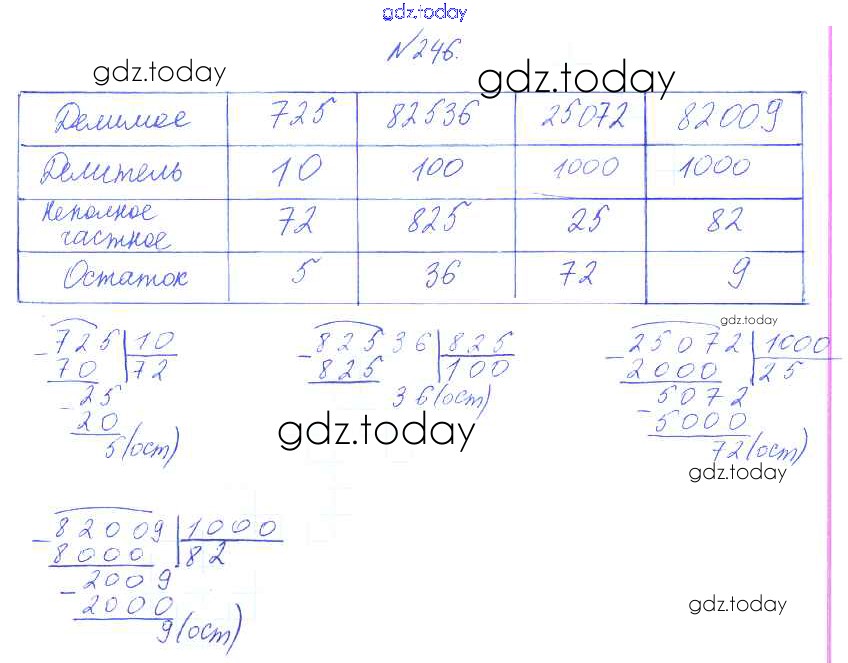 gdz.today
№246.
gdz.today gdz.today
Делимое 725 82536 25072 82009
Делитель 10 100 1000 1000
Неполное частное 72 825 25 82
Остаток 5 36 72 9
gdz.today
- 725 | 10
70 | 72
- 25
20
5 (ост)
- 82536 | 825
825 | 100
36 (ост)
- 25072 | 1000
2000 | 25
- 5072
5000
72 (ост)
gdz.today
gdz.today
- 82009 | 1000
8000 | 82
- 2009
2000
9 (ост)
gdz.today